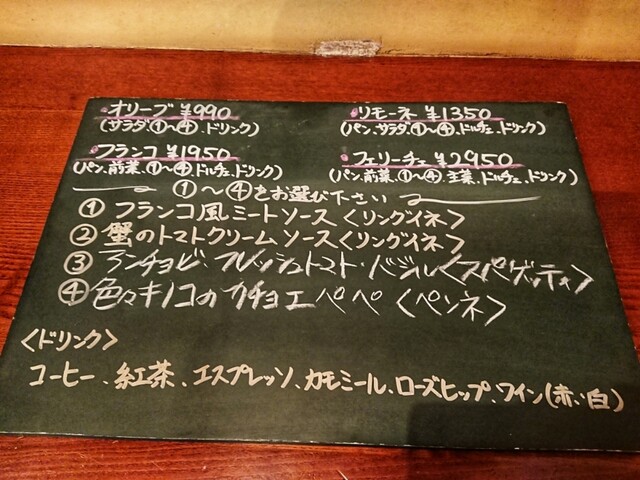 オリーブ ¥990
(サラダ、①〜④、ドリンク)
リモーネ ¥1350
(パン、サラダ、①〜④、ドルチェ、ドリンク)
フランコ ¥1950
(パン、前菜、①〜④、ドルチェ、ドリンク)
フェリーチェ ¥2950
(パン、前菜、①〜④、主菜、ドルチェ、ドリンク)
①〜④をお選び下さい
① フランコ風ミートソース〈リングイネ〉
② 蟹のトマトクリームソース〈リングイネ〉
③ アンチョビ・フレッシュトマト・バジル〈スパゲッティ〉
④ 色々キノコのカチョエペペ〈ペンネ〉
〈ドリンク〉
コーヒー、紅茶、エスプレッソ、カモミール、ローズヒップ、ワイン(赤・白)